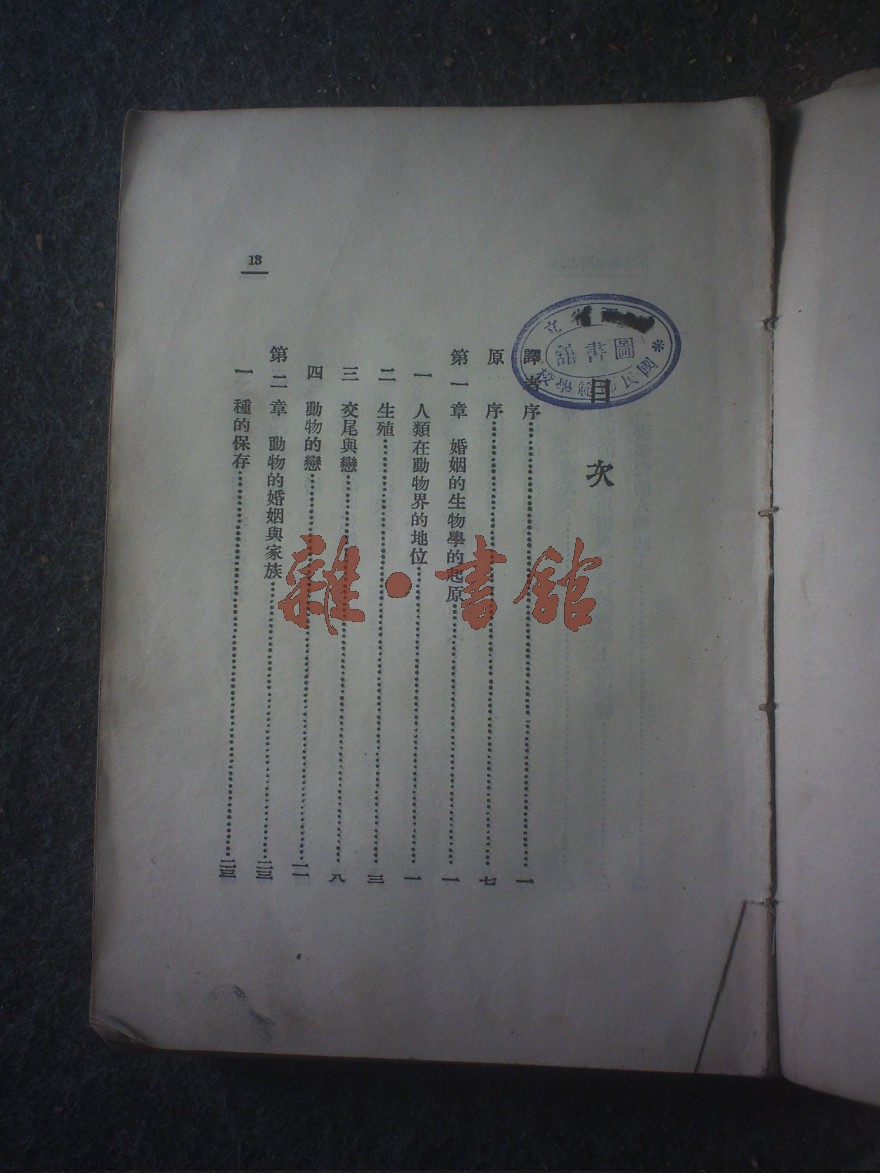 13
目次
譯者序……一
原　序……七
第一章　婚姻的生物學的起原……一
一　人類在動物界的地位……一
二　生殖……三
三　交尾與戀……
四　動物的戀……
第二章　動物的婚姻與家族……二三
一　種的保存……二三
省立
國民師範學校
圖書館
雜·書館